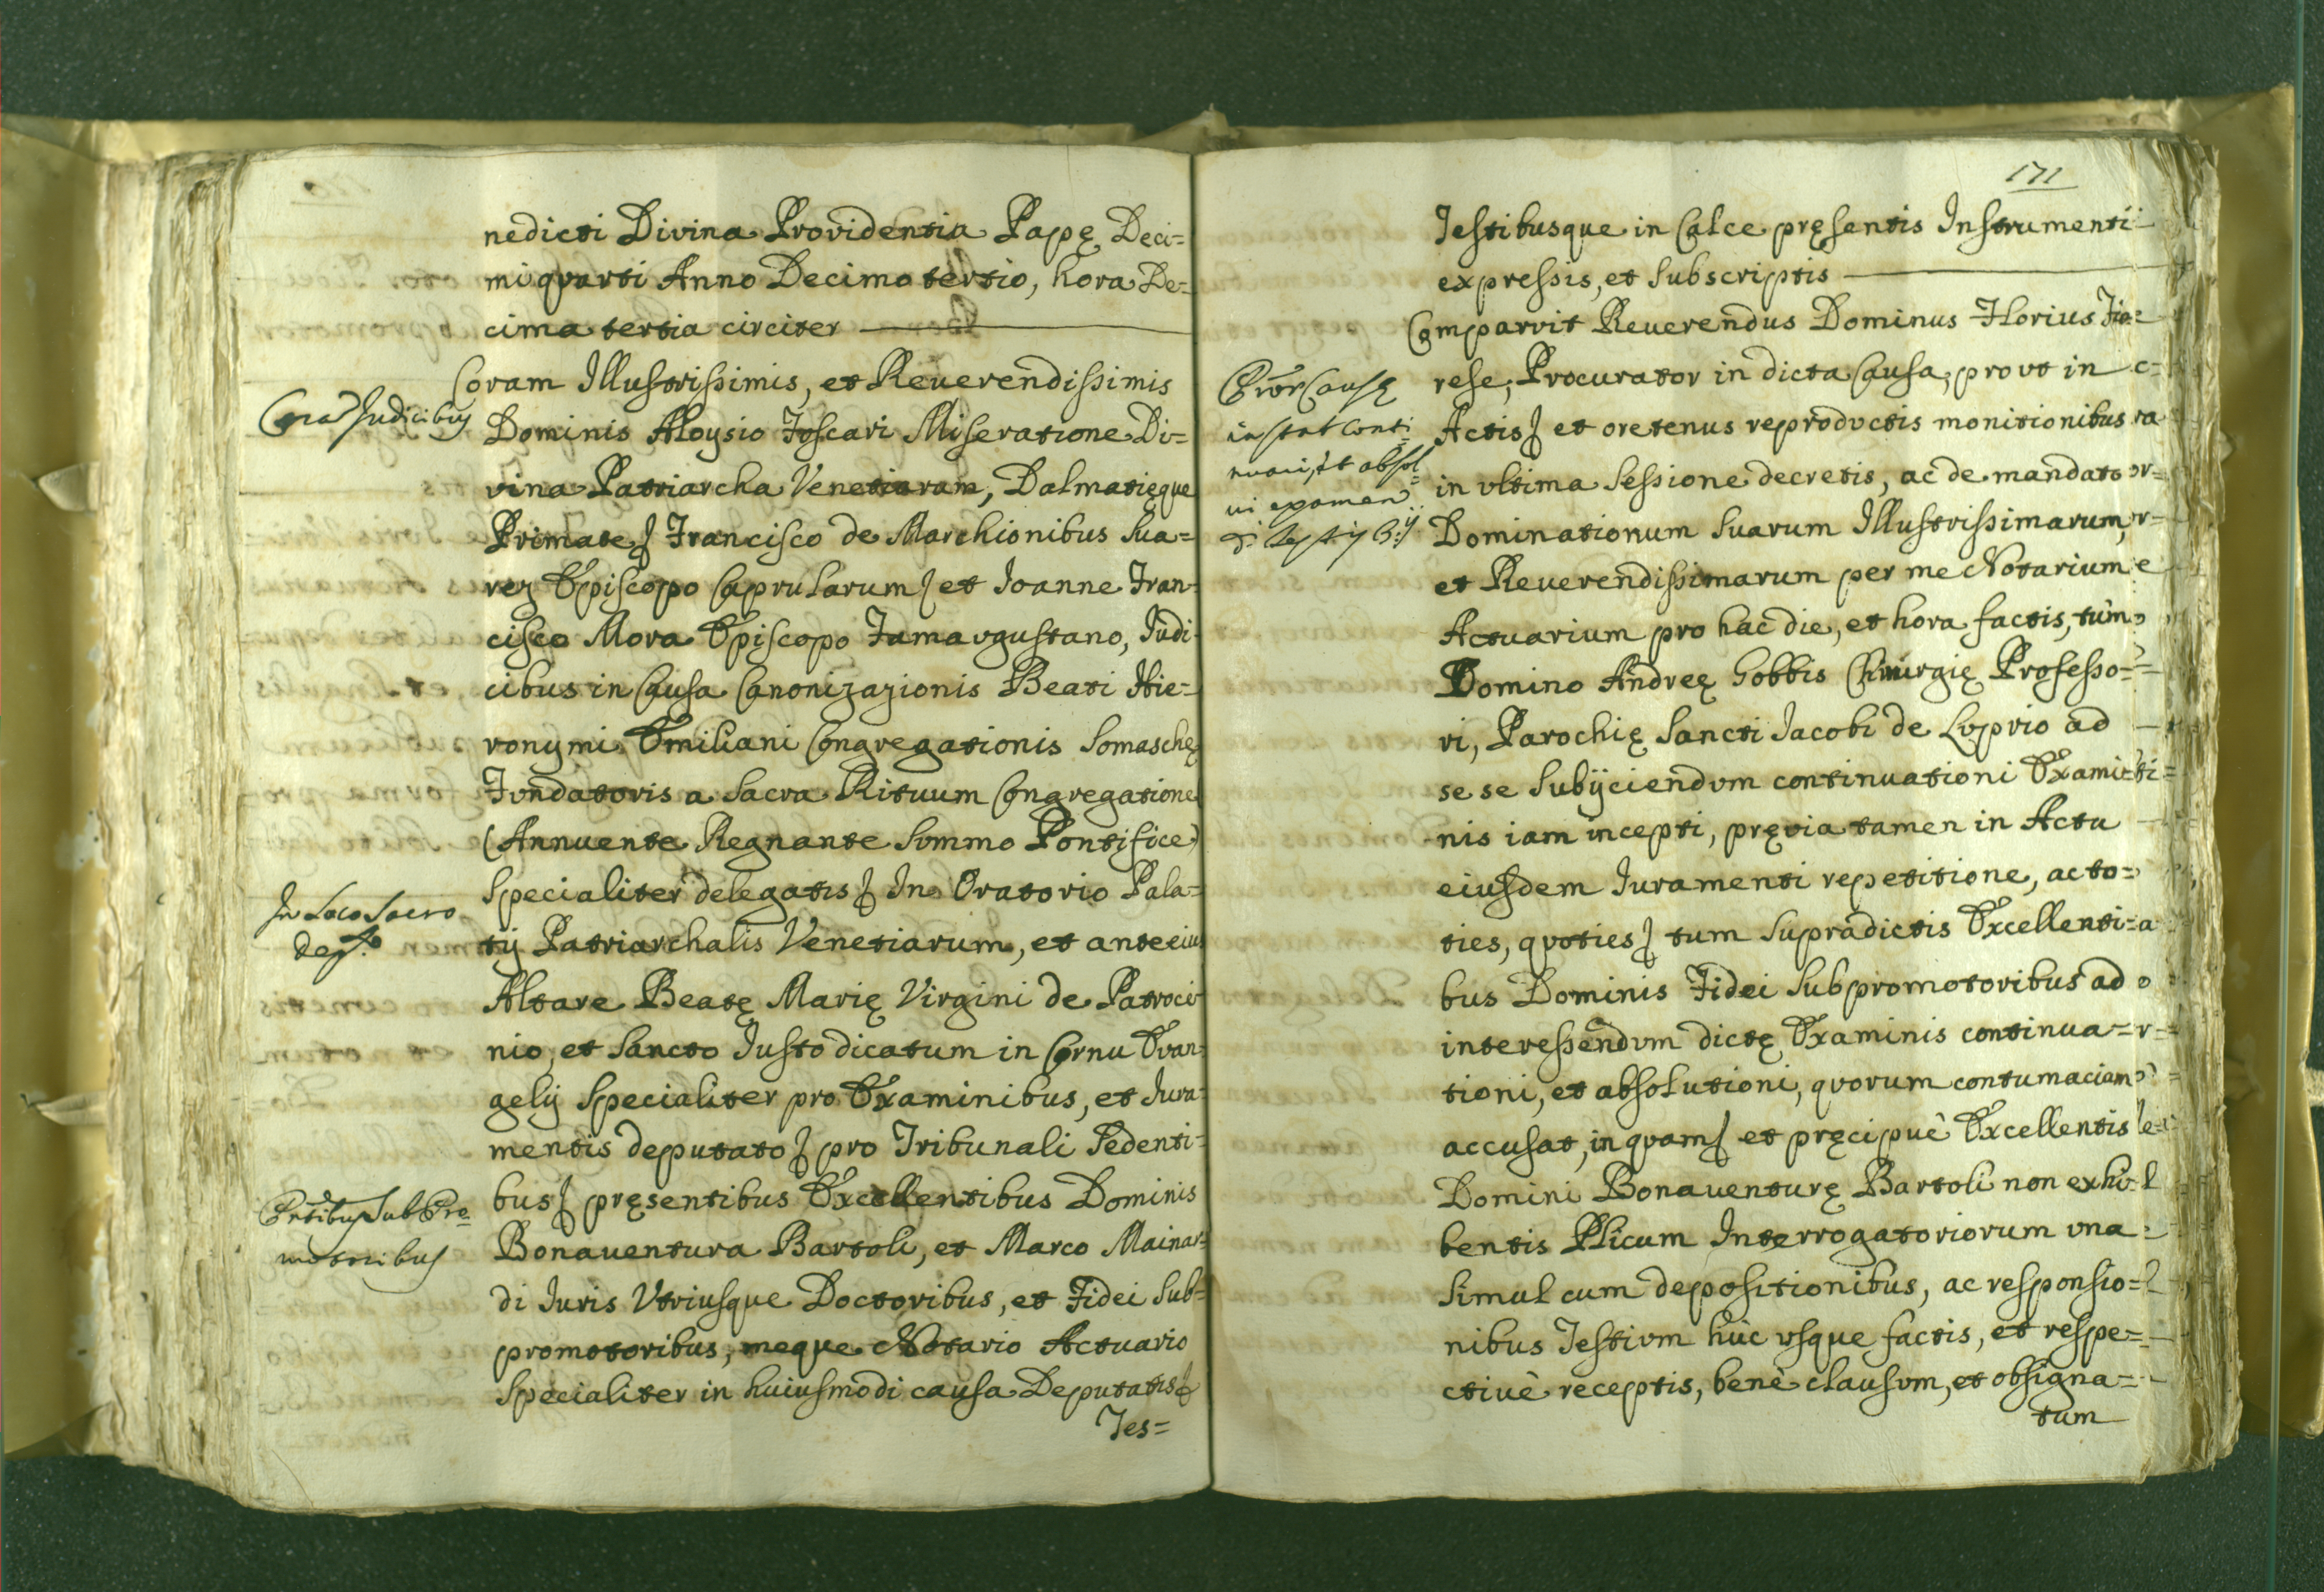 nedicti Divina Providentia Papę Deci=
mi quarti Anno Decimo tertio, hora De=
cima tertia circiter
Coram Illustrissimis, et Reuerendissimis
Corā Judicibus
Dominis Aloysio Foscari Miseratione Di=
vina Patriarcha Venetiarum, Dalmatięque
Primate, Francisco de Marchionibus Sua=
rez Episcopo Caprularum, et Ioanne Fran=
cisco Mora Episcopo Famaugustano, Iudi=
cibus in Causa Canonizazionis Beati Hie=
ronymi Emiliani Congregationis Somaschę
Fundatoris a Sacra Rituum Congregatione
(Annuente Regnante Summo Pontifice)
Specialiter delegatis, In Oratorio Pala=
In Loco Sacro
dep.to
tij Patriarchalis Venetiarum, et ante eius
Altare Beatę Marię Virgini de Patroci=
nio, et Sancto Iusto dicatum in Cornu Evan=
gelij Specialiter pro Examinibus, et Iura=
mentis deputato, pro Tribunali Sedenti=
bus, pręsentibus Excellentibus Dominis
Pn̄tibus SubPro=
motoribus
Bonauentura Bartoli, et Marco Mainar=
di Iuris Vtriusque Doctoribus, et Fidei Sub=
promotoribus, meque Notario Actuario
Specialiter in huiusmodi causa Deputatis,
Tes=
171
Testibusque in Calce pręsentis Instrumenti
expressis, et subscriptis
Comparvit Reuerendus Dominus Florius Fio=
rese, Procurator in dicta Causa, prout in
Causę
instat conti=
nuari, et absol=
ui examen
Actis, et oretenus reproductis monitionibus
in vltima Sessione decretis, ac de mandato
Dominationum Suarum Illustrissimarum,
et Reuerendissimarum per me Notarium
Actuarium pro hac die, et hora factis, tùm
Domino Andreę Gobbis Chirurgię Professo=
ri, Parochię Sancti Iacobi de Luprio ad
se se subijciendum continuationi Exami=
nis iam incepti, pręvia tamen in Actu
eiusdem Iuramenti repetitione, ac to=
ties, quoties, tum supradictis Excellenti=
bus Dominis Fidei Subpromotoribus ad
interessendum dictę Examinis continua=
tioni, et absolutioni, quorum contumaciam
accusat, in quam, et pręcipuè Excellentis
Domini Bonauenturę Bartoli non exhi=
bentis Plicum Interrogatoriorum vna
Simul cum depositionibus, ac responsio=
nibus Testium huc vsque factis, et respe=
ctiuè receptis, benè clausum, et obsigna=
tum